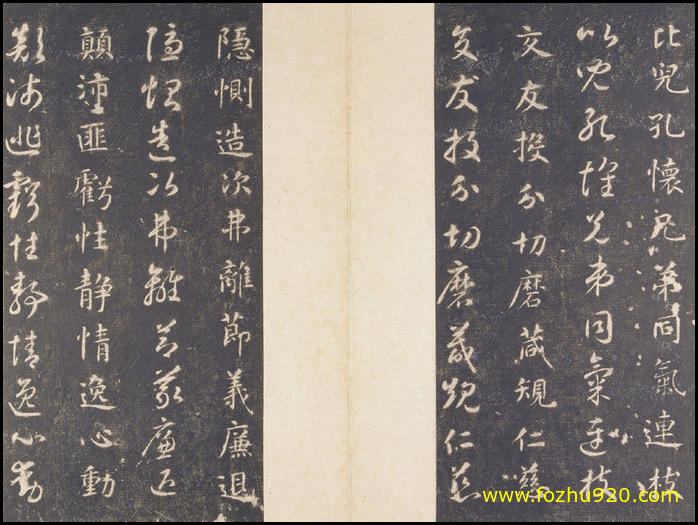 比兒孔懷兄弟同氣連枝
比兒孔懷兄弟同氣連枝
交友投分切磨箴規仁慈
交友投分切磨箴規仁慈
隱惻造次弗離節義廉退
隱惻造次弗離節義廉退
顛沛匪虧性静情逸心動
顛沛匪虧性静情逸心動
www.fozhu920.com